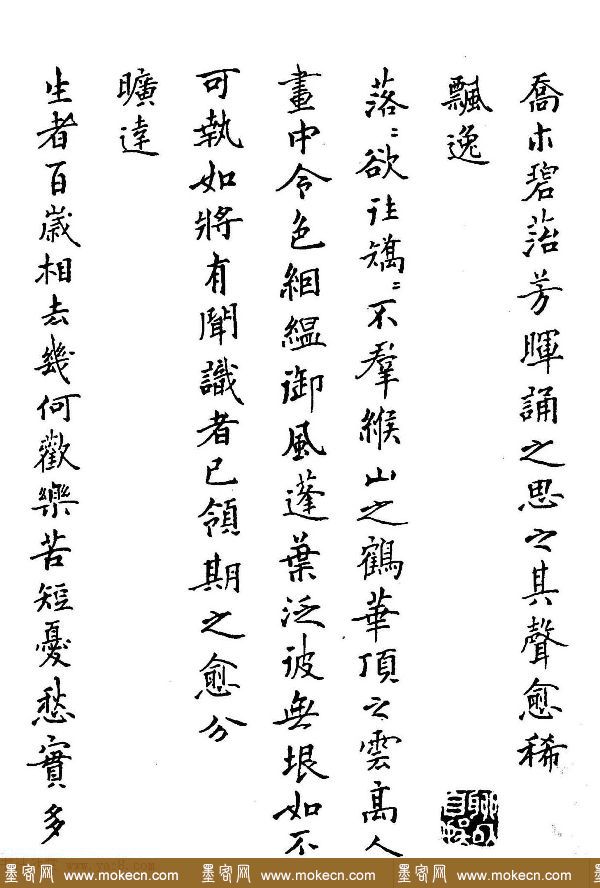 喬木碧菭芳暉誦之思之其聲愈稀
飄逸
落〻欲往矯〻不羣緱山之鶴華頂之雲高人
畫中令色絪緼御風蓬葉泛彼無垠如不
可執如將有聞識者已領期之愈分
曠達
生者百歲相去幾何歡樂苦短憂愁實多
聊以自娛
墨客网 www.mokecn.com 墨客网 www.mokecn.com 墨客网 www.mokecn.com 墨客网 www.mokecn.com